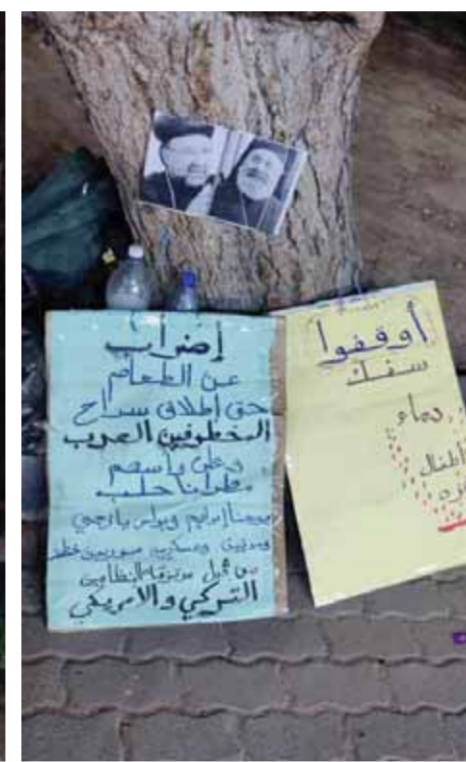 إضراب
عن الطعام
حتى اطلاق سراح
المخطوفين العرب
وعلى رأسهم
مطرانا حلب
يوحنا إبراهيم وبولس يازجي
ومدنيين وعسكريين سوريين خطفوا
من قبل مرتزقة النظامين
التركي والامريكي
أوقفوا
سفك
دماء
اطفال
غزة